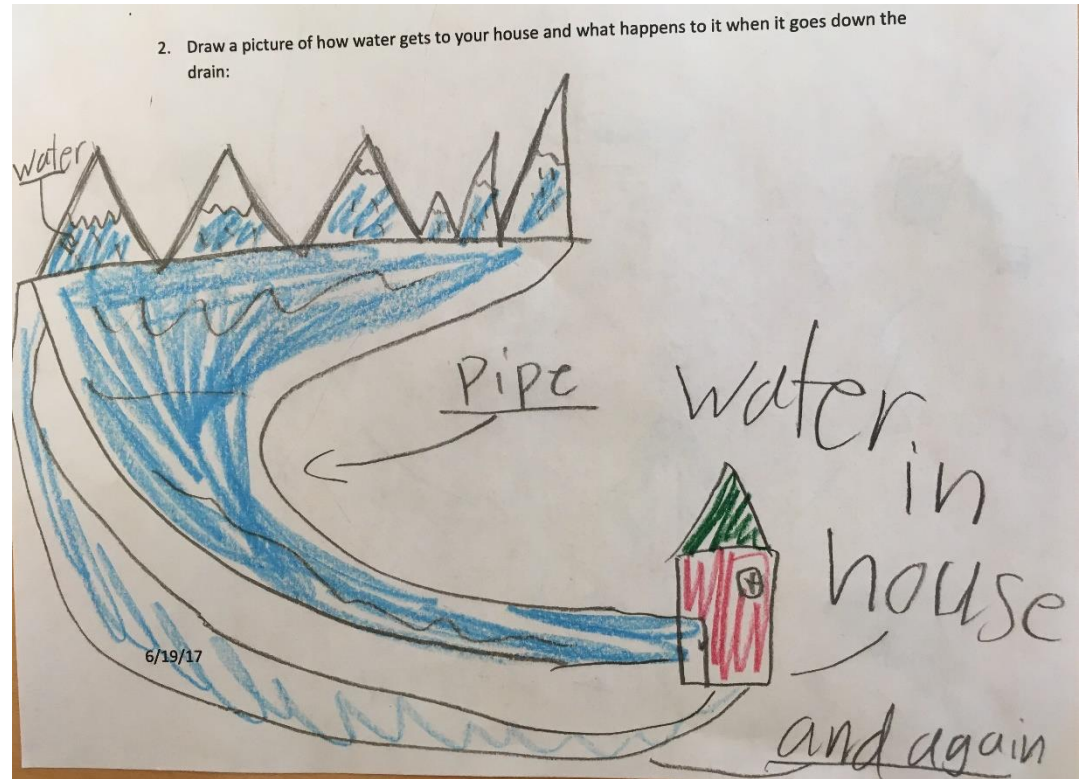 2. Draw a picture of how water gets to your house and what happens to it when it goes down the
drain:
water
pipe
water
in
house
6/19/17
and again